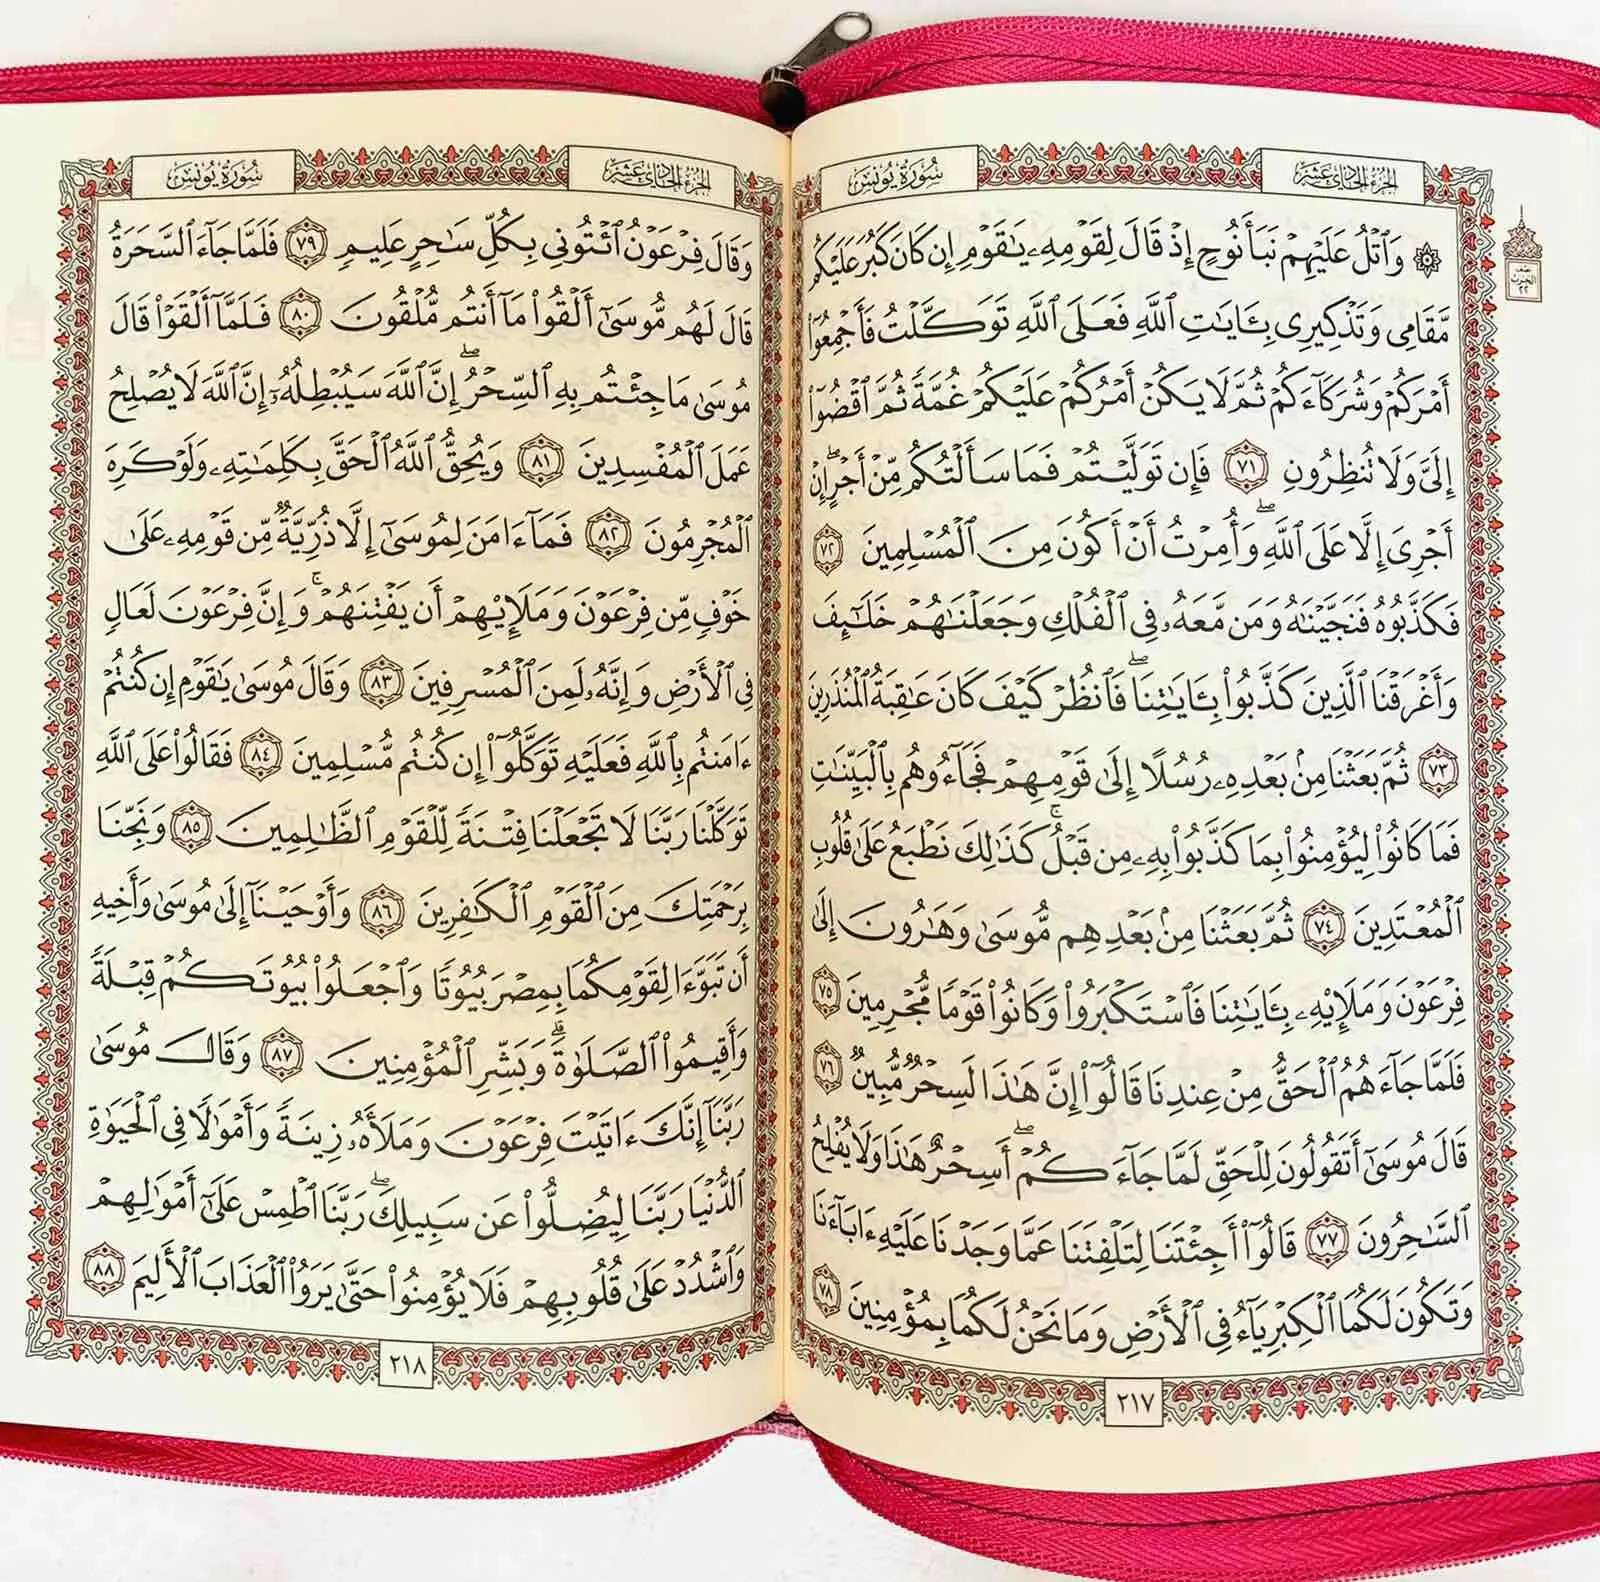 سُورَةُ يُونُسَ
الجُزْءُ الحَادِي عَشَرَ
۞ وَٱتْلُ عَلَيْهِمْ نَبَأَ نُوحٍ إِذْ قَالَ لِقَوْمِهِۦ يَٰقَوْمِ إِن كَانَ كَبُرَ عَلَيْكُم
مَّقَامِى وَتَذْكِيرِى بِـَٔايَٰتِ ٱللَّهِ فَعَلَى ٱللَّهِ تَوَكَّلْتُ فَأَجْمِعُوٓا۟
أَمْرَكُمْ وَشُرَكَآءَكُمْ ثُمَّ لَا يَكُنْ أَمْرُكُمْ عَلَيْكُمْ غُمَّةً ثُمَّ ٱقْضُوٓا۟
إِلَىَّ وَلَا تُنظِرُونِ ٧١ فَإِن تَوَلَّيْتُمْ فَمَا سَأَلْتُكُم مِّنْ أَجْرٍ ۖ إِنْ
أَجْرِىَ إِلَّا عَلَى ٱللَّهِ ۖ وَأُمِرْتُ أَنْ أَكُونَ مِنَ ٱلْمُسْلِمِينَ ٧٢
فَكَذَّبُوهُ فَنَجَّيْنَٰهُ وَمَن مَّعَهُۥ فِى ٱلْفُلْكِ وَجَعَلْنَٰهُمْ خَلَٰٓئِفَ
وَأَغْرَقْنَا ٱلَّذِينَ كَذَّبُوا۟ بِـَٔايَٰتِنَا ۖ فَٱنظُرْ كَيْفَ كَانَ عَٰقِبَةُ ٱلْمُنذَرِينَ
٧٣ ثُمَّ بَعَثْنَا مِنۢ بَعْدِهِۦ رُسُلًا إِلَىٰ قَوْمِهِمْ فَجَآءُوهُم بِٱلْبَيِّنَٰتِ
فَمَا كَانُوا۟ لِيُؤْمِنُوا۟ بِمَا كَذَّبُوا۟ بِهِۦ مِن قَبْلُ ۚ كَذَٰلِكَ نَطْبَعُ عَلَىٰ قُلُوبِ
ٱلْمُعْتَدِينَ ٧٤ ثُمَّ بَعَثْنَا مِنۢ بَعْدِهِم مُّوسَىٰ وَهَٰرُونَ إِلَىٰ
فِرْعَوْنَ وَمَلَإِي۟هِۦ بِـَٔايَٰتِنَا فَٱسْتَكْبَرُوا۟ وَكَانُوا۟ قَوْمًا مُّجْرِمِينَ ٧٥
فَلَمَّا جَآءَهُمُ ٱلْحَقُّ مِنْ عِندِنَا قَالُوٓا۟ إِنَّ هَٰذَا لَسِحْرٌ مُّبِينٌ ٧٦
قَالَ مُوسَىٰٓ أَتَقُولُونَ لِلْحَقِّ لَمَّا جَآءَكُمْ ۖ أَسِحْرٌ هَٰذَا وَلَا يُفْلِحُ
ٱلسَّٰحِرُونَ ٧٧ قَالُوٓا۟ أَجِئْتَنَا لِتَلْفِتَنَا عَمَّا وَجَدْنَا عَلَيْهِ ءَابَآءَنَا
وَتَكُونَ لَكُمَا ٱلْكِبْرِيَآءُ فِى ٱلْأَرْضِ وَمَا نَحْنُ لَكُمَا بِمُؤْمِنِينَ ٧٨
٢١٧
سُورَةُ يُونُسَ
الجُزْءُ الحَادِي عَشَرَ
وَقَالَ فِرْعَوْنُ ٱئْتُونِى بِكُلِّ سَٰحِرٍ عَلِيمٍ ٧٩ فَلَمَّا جَآءَ ٱلسَّحَرَةُ
قَالَ لَهُم مُّوسَىٰٓ أَلْقُوا۟ مَآ أَنتُم مُّلْقُونَ ٨٠ فَلَمَّآ أَلْقَوْا۟ قَالَ
مُوسَىٰ مَا جِئْتُم بِهِ ٱلسِّحْرُ ۖ إِنَّ ٱللَّهَ سَيُبْطِلُهُۥٓ إِنَّ ٱللَّهَ لَا يُصْلِحُ
عَمَلَ ٱلْمُفْسِدِينَ ٨١ وَيُحِقُّ ٱللَّهُ ٱلْحَقَّ بِكَلِمَٰتِهِۦ وَلَوْ كَرِهَ
ٱلْمُجْرِمُونَ ٨٢ فَمَآ ءَامَنَ لِمُوسَىٰٓ إِلَّا ذُرِّيَّةٌ مِّن قَوْمِهِۦ عَلَىٰ
خَوْفٍ مِّن فِرْعَوْنَ وَمَلَإِي۟هِمْ أَن يَفْتِنَهُمْ ۚ وَإِنَّ فِرْعَوْنَ لَعَالٍ
فِى ٱلْأَرْضِ وَإِنَّهُۥ لَمِنَ ٱلْمُسْرِفِينَ ٨٣ وَقَالَ مُوسَىٰ يَٰقَوْمِ إِن كُنتُمْ
ءَامَنتُم بِٱللَّهِ فَعَلَيْهِ تَوَكَّلُوٓا۟ إِن كُنتُم مُّسْلِمِينَ ٨٤ فَقَالُوا۟ عَلَى ٱللَّهِ
تَوَكَّلْنَا رَبَّنَا لَا تَجْعَلْنَا فِتْنَةً لِّلْقَوْمِ ٱلظَّٰلِمِينَ ٨٥ وَنَجِّنَا
بِرَحْمَتِكَ مِنَ ٱلْقَوْمِ ٱلْكَٰفِرِينَ ٨٦ وَأَوْحَيْنَآ إِلَىٰ مُوسَىٰ وَأَخِيهِ
أَن تَبَوَّءَا لِقَوْمِكُمَا بِمِصْرَ بُيُوتًا وَٱجْعَلُوا۟ بُيُوتَكُمْ قِبْلَةً
وَأَقِيمُوا۟ ٱلصَّلَوٰةَ ۗ وَبَشِّرِ ٱلْمُؤْمِنِينَ ٨٧ وَقَالَ مُوسَىٰ
رَبَّنَآ إِنَّكَ ءَاتَيْتَ فِرْعَوْنَ وَمَلَأَهُۥ زِينَةً وَأَمْوَٰلًا فِى ٱلْحَيَوٰةِ
ٱلدُّنْيَا رَبَّنَا لِيُضِلُّوا۟ عَن سَبِيلِكَ ۖ رَبَّنَا ٱطْمِسْ عَلَىٰٓ أَمْوَٰلِهِمْ
وَٱشْدُدْ عَلَىٰ قُلُوبِهِمْ فَلَا يُؤْمِنُوا۟ حَتَّىٰ يَرَوُا۟ ٱلْعَذَابَ ٱلْأَلِيمَ ٨٨
٢١٨